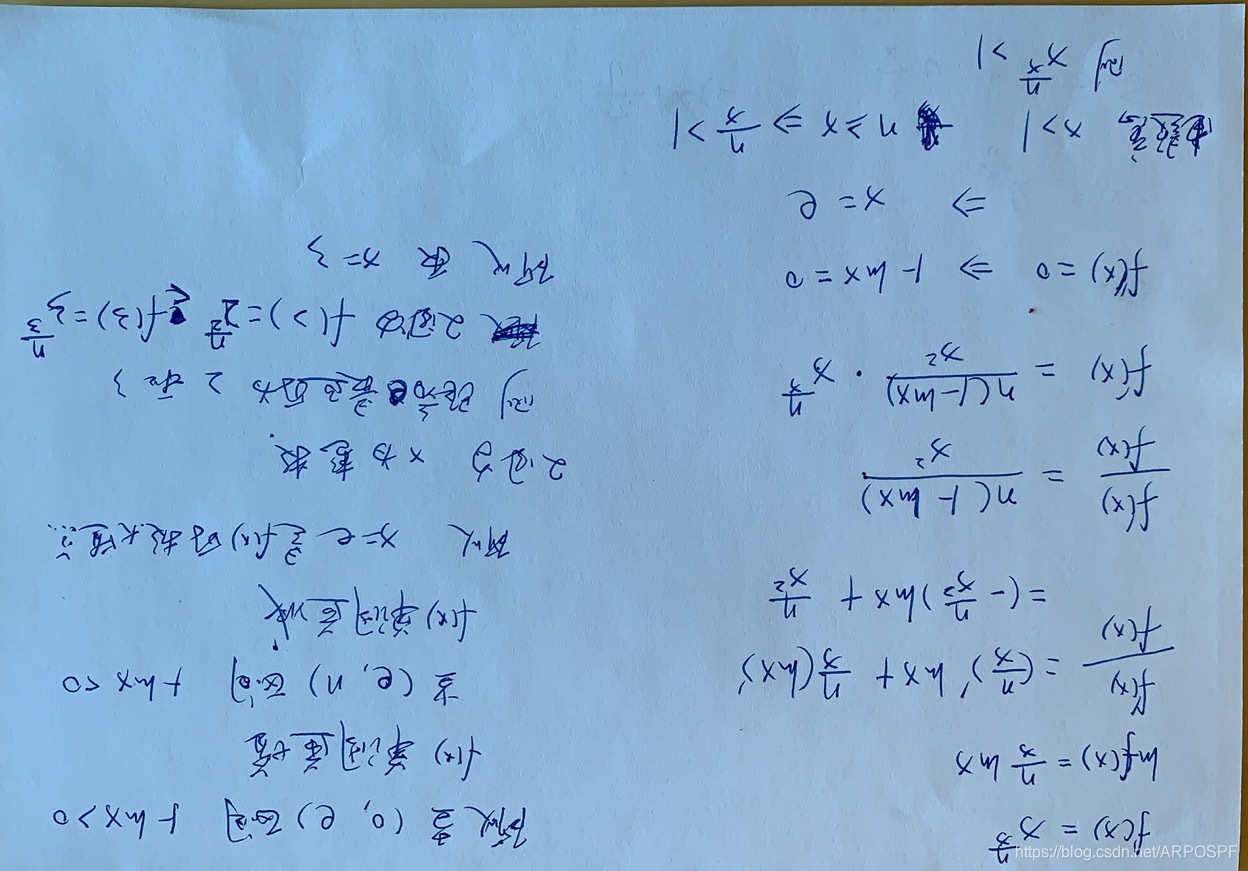 f(x) = x^{n/x}
ln f(x) = n/x ln x
f'(x)/f(x) = (n/x)' ln x + n/x (ln x)'
= (-n/x²) ln x + n/x²
f'(x)/f(x) = n(1-ln x)/x²
f'(x) = n(1-ln x)/x² · x^{n/x}
f'(x) = 0 ⇒ 1-ln x = 0
⇒ x = e
由题意, x>1 n≥x ⇒ n/x >1
则 x^{n/x} >1
所以在(0, e) 区间 1-ln x>0
f(x) 单调递增
在(e, n) 区间 1-ln x<0
f(x) 单调递减
所以 x=e 是f(x)的极大值点
又因为 x为整数
则 距离e最近的为 2 和 3
又因为 f(2)=2^{n/2} ≤ f(3)=3^{n/3}
所以 取 x=3
https://blog.csdn.net/ARPOSPF